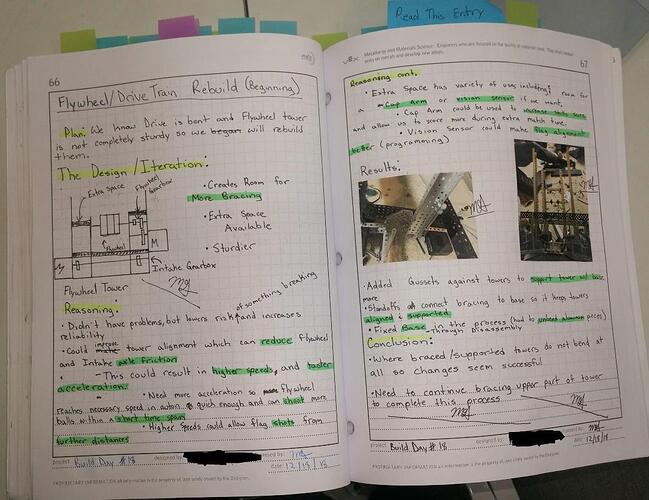 Read This Entry
66
Flywheel/DriveTrain Rebuild (Beginning)
Plan: We know Drive is bent and Flywheel tower
is not completely sturdy so we began will rebuild
them.
The Design/Iteration:
Extra Space
Flywheel
Gearbox
Flywheel
M
Intake Gearbox
Flywheel Tower
• Creates Room for
More Bracing
• Extra Space
Available
• Sturdier
Reasoning:
• Didn't have problems, but lowers risk of something breaking and increases
reliability
• Could improve tower alignment which can reduce Flywheel
and Intake axle friction
- This could result in higher speeds, and faster
acceleration.
• Need more acceleration so Flywheel
reaches necessary speed in auton quick enough and can shoot more
balls within a short time span
• Higher Speeds could allow flag shots from
further distances
project Build Day #18
designed by:
date: 12/18/18
PROPRIETARY INFORMATION
Metallurgy and Materials Science: Engineers who are focused on
entry on metals and develop new alloys.
67
Reasoning cont.
• Extra Space has variety of uses including room for
a Cap Arm or vision sensor if we want.
• Cap Arm could be used to increase
and allow us to score more during extra match time.
• Vision Sensor could make flag alignment
better (programming)
Results:
• Added Gussets against towers to support tower w/ base
more
• Standoffs connect bracing to base so it keeps towers
aligned & supported
• Fixed Base in the process (had to unbend aluminum pieces)
Through Disassembly
Conclusion:
• Where braced/supported towers do not bend at
all so changes seem successful
• Need to continue bracing upper part of tower
to complete this process
project Build Day #18
designed by:
date: 12/18/18
PROPRIETARY INFORMATION